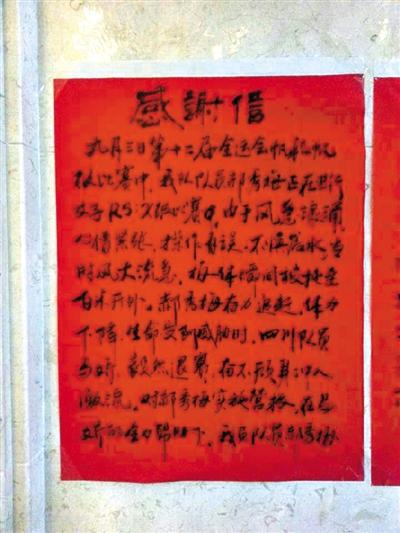 感謝信
九月三日第十二届全运会帆船帆
板比赛中,我队队员郝秀梅正在进行
女子RS:X级比赛,由于风急浪涌
操作有误,不慎落水,当
时风大流急,板体瞬间被冲至
百米开外。郝秀梅奋力追赶,体力
下降,生命受到威胁时,四川队员
马娇,毅然退赛,奋不顾身冲入
激流,对郝秀梅实施营救,在马
娇的全力帮助下,我队队员郝秀梅